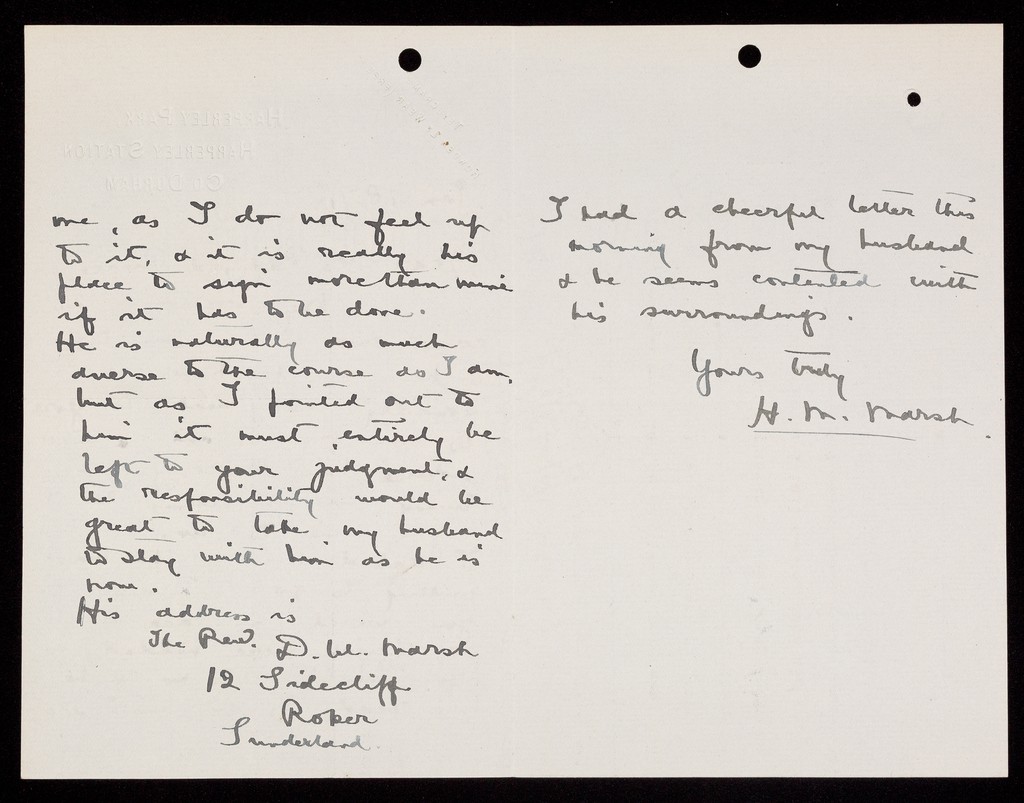 me, as I do not feel up
to it, & it is really his
place to sign more than mine
if it has to be done.
He is naturally as much
averse to the course as I am,
but as I pointed out to
him it must entirely be
left to your judgment, &
the responsibility would be
great to take my husband
to stay with him as he is
now.
His address is
The Revd. D. W. Marsh
12 Sidecliff
Roker
Sunderland.
I had a cheerful letter this
morning from my husband
& he seems contented with
his surroundings.
Yours truly
H. M. Marsh.
HARPERLEY PARK
HARPERLEY STATION
CO. DURHAM